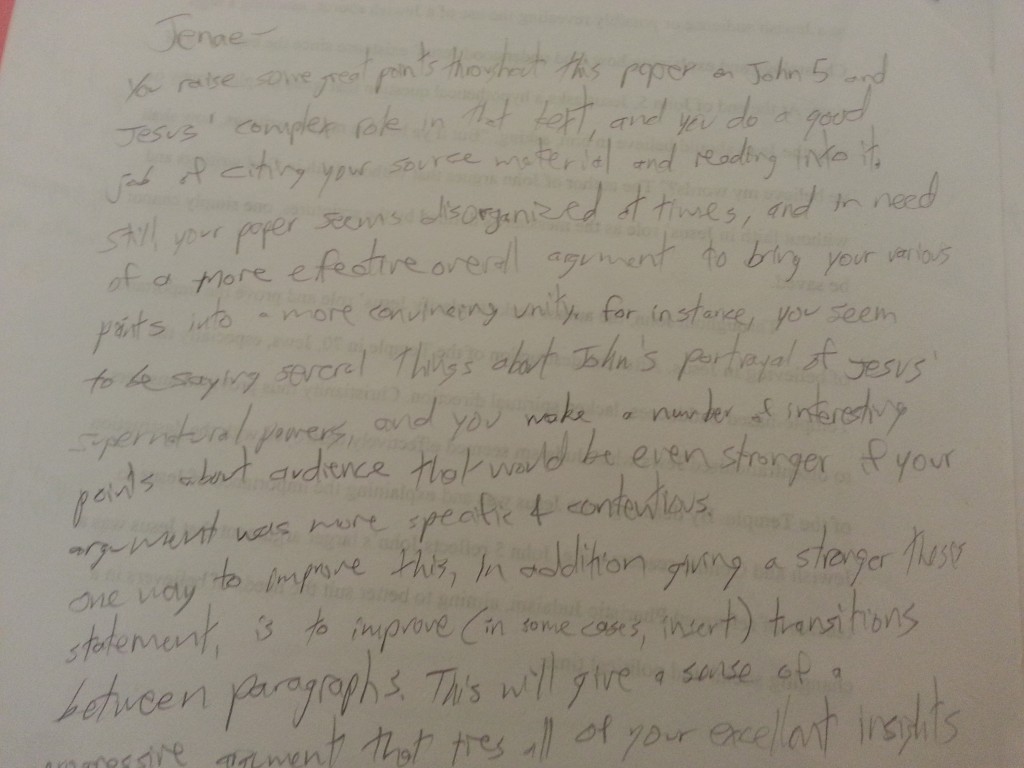 Jenae-
You raise some great points throughout this paper on John 5 and
Jesus' complex role in that text, and you do a good
job of citing your source material and reading into it.
Still, your paper seems disorganized at times, and in need
of a more effective overall argument to bring your various
points into a more convincing unity. For instance, you seem
to be saying several things about John's portrayal of Jesus'
supernatural powers, and you make a number of interesting
points about audience that would be even stronger if your
argument was more specific & contentious.
One way to improve this, in addition giving a stronger thesis
statement, is to improve (in some cases, insert) transitions
between paragraphs. This will give a sense of a
progressive argument that ties all of your excellent insights